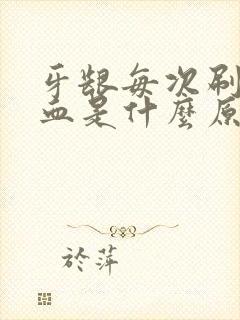 牙龈每次刷
血是什麼原
於萍